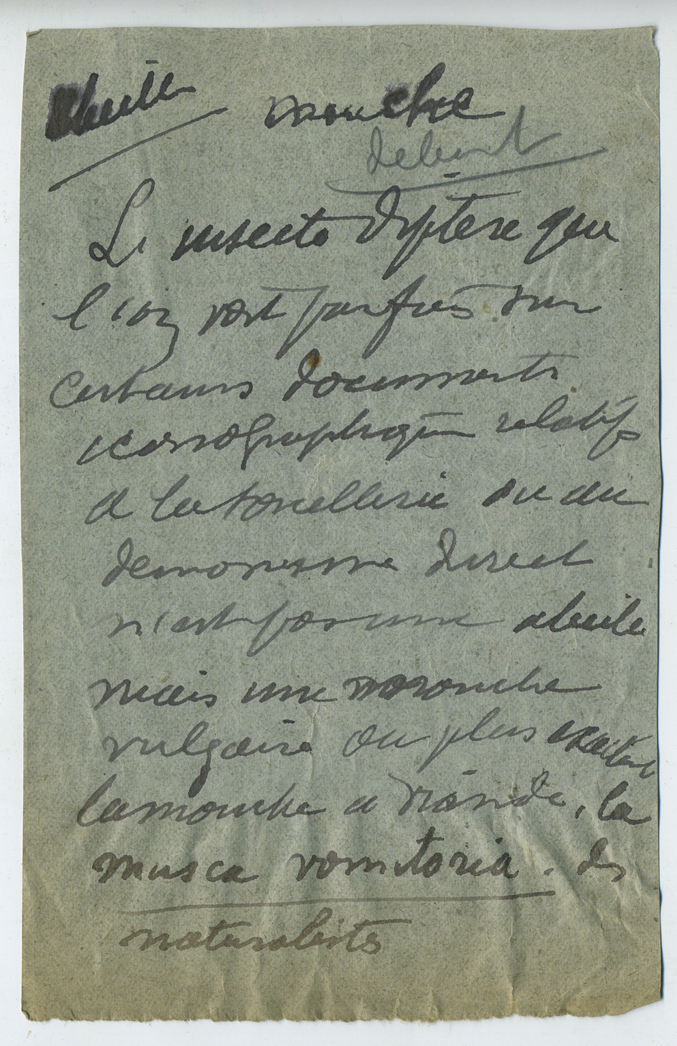 abeille
mouche
debut
Le insecte diptère que
l'on voit parfois sur
certains documents
iconographiques relatifs
a la sorcellerie ou au
demonisme direct
n'est pas une abeille
mais une mouche
vulgaire ou plus exactement
la mouche a viande, la
musca vomitoria. des
naturalistes